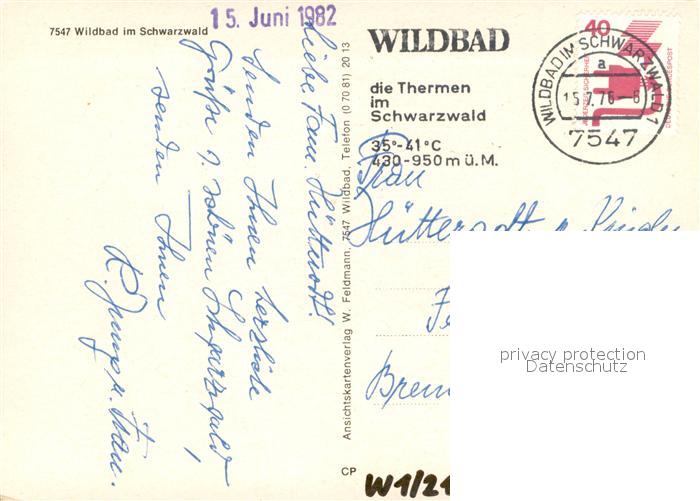 7547 Wildbad im Schwarzwald
15. Juni 1982
Liebe Fam. Hütterodt!
senden Ihnen herzliche
Grüße v. schönen Schwarzwald,
senden Ihnen
R. Jung u. Frau.
Ansichtskartenverlag W. Feldmann, 7547 Wildbad, Telefon (0 70 81) 20 13
CP
WILDBAD
die Thermen
im
Schwarzwald
35°-41°C
430-950 m ü.M.
WILDBAD IM SCHWARZWALD 1
a
15.7.76-8
7547
40
JEDERZEIT SICHERHEIT
DEUTSCHE BUNDESPOST
Frau
Hütterodt
Brem
privacy protection
Datenschutz
W1/21